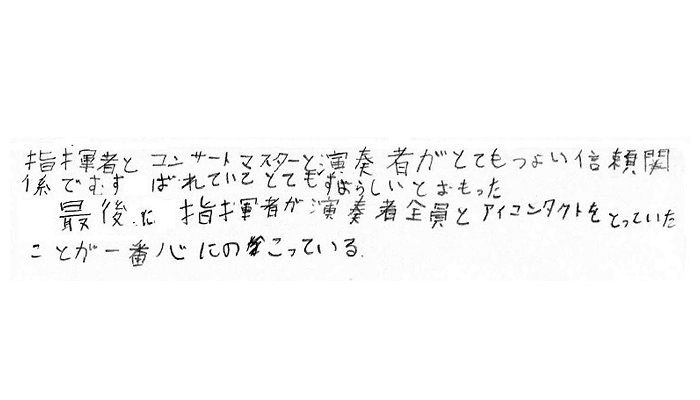 指揮者とコンサートマスターと演奏者がとてもつよい信頼関
係でむすばれていてとてもすばらしいとおもった
最後に指揮者が演奏者全員とアイコンタクトをとっていた
ことが一番心にのこっている.